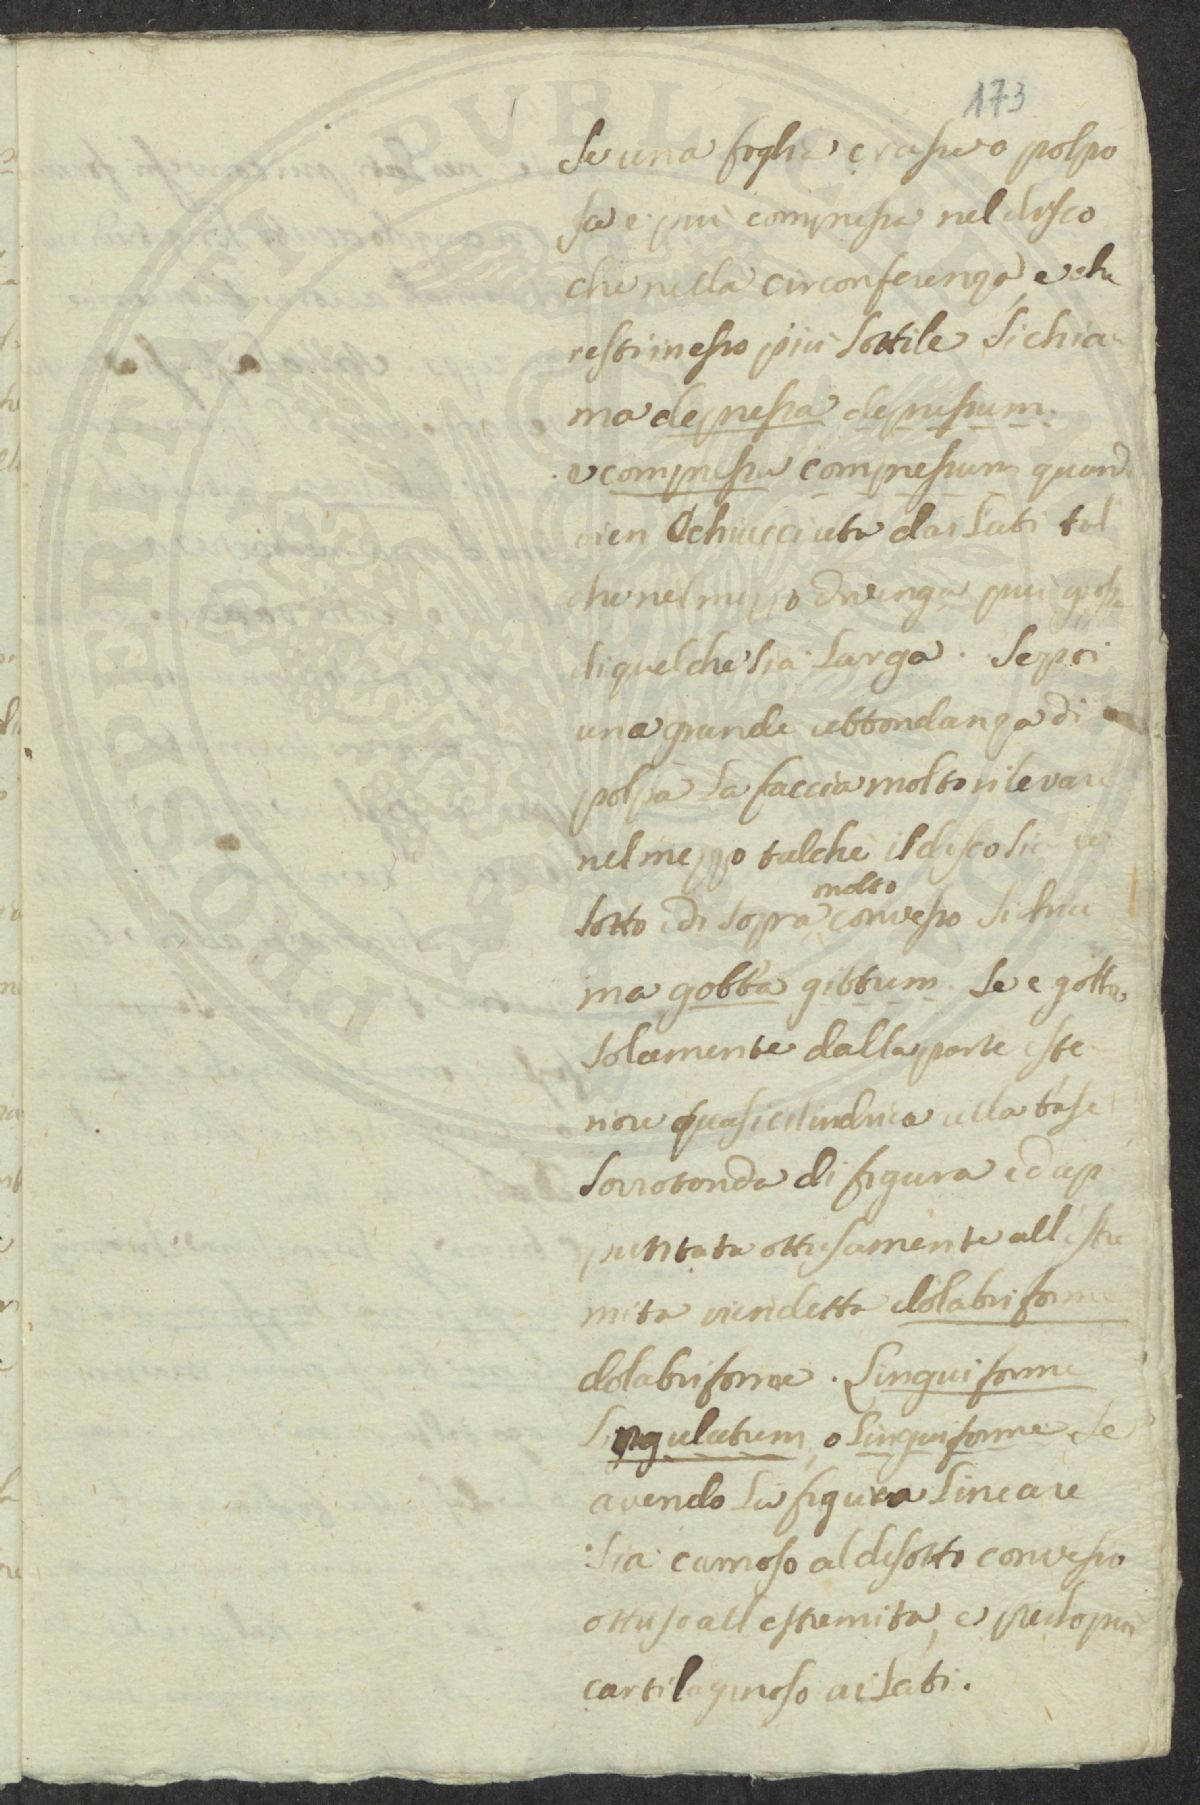 173
Se una foglia crassa o polpo
sa è più compressa nel disco
che nella circonferenza, e che
resti in esso più sottile si chia
ma depressa depressum.
e compressa compressum quand
vien schiacciata dai lati tal
che nel mezzo divenga più
di quel che sia larga. Se poi
una grande abbondanza di
polpa la faccia molto rilevare
nel mezzo talchè il disco sia
molto
sotto e di sopra convesso si chia
ma gobba gibbum. Se è gobba
solamente dalla parte este
riore quasi cilindrica alla base
sorrotonda di figura ed ap
puntata ottusamente all'estre
mità vien detta dolabriforme
dolabriforme. Linguiforme
lingulatum, o linguiforme se
avendo la figura lineare
sia carnoso al disotto convesso
ottuso all'estremità, e
cartilaginoso ai lati.
BOSPERITATI PVBLIC